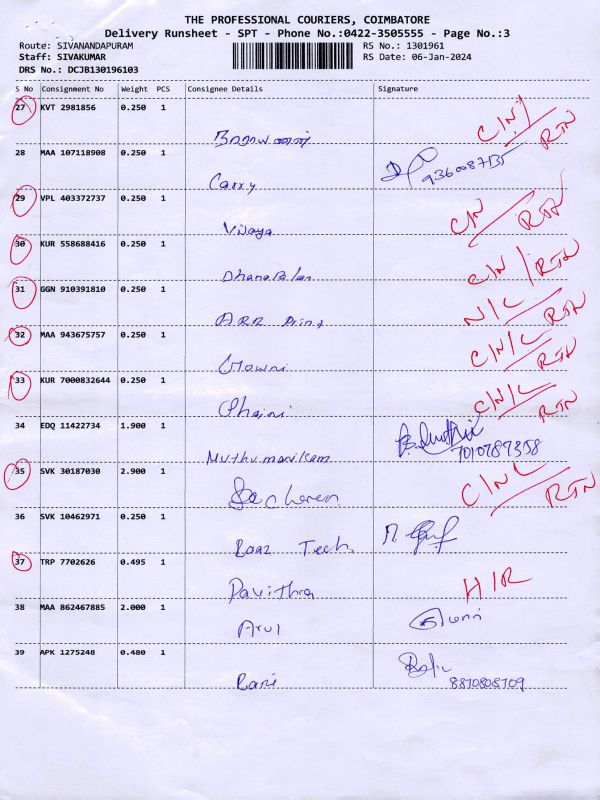 THE PROFESSIONAL COURIERS, COIMBATORE
Delivery Runsheet - SPT - Phone No.:0422-3505555 - Page No.:3
Route: SIVANANDAPURAM RS No.: 1301961
Staff: SIVAKUMAR RS Date: 06-Jan-2024
DRS No.: DCJB130196103
S No Consignment No Weight PCS Consignee Details Signature
27 KVT 2981856 0.250 1
நாராயணன் C/N/ RTN
28 MAA 107118908 0.250 1
Carry 9360087135
29 VPL 403372737 0.250 1
Vijaya C/N RTN
30 KUR 558688416 0.250 1
DhanaPalan C/N/RTN
31 GGN 910391810 0.250 1
ARR Print N/C RTN
32 MAA 943675757 0.250 1
Mowni C/N/C RTN
33 KUR 7000832644 0.250 1
C/N/C RTN
34 EDQ 11422734 1.900 1
Muthumanikam 7010787358
35 SVK 30187030 2.900 1
C/N/C RTN
36 SVK 10462971 0.250 1
Raaz Tech
37 TRP 7702626 0.495 1
Pavithra H/R
38 MAA 862467885 2.000 1
Arul
39 APK 1275248 0.480 1
Rani 8870808709